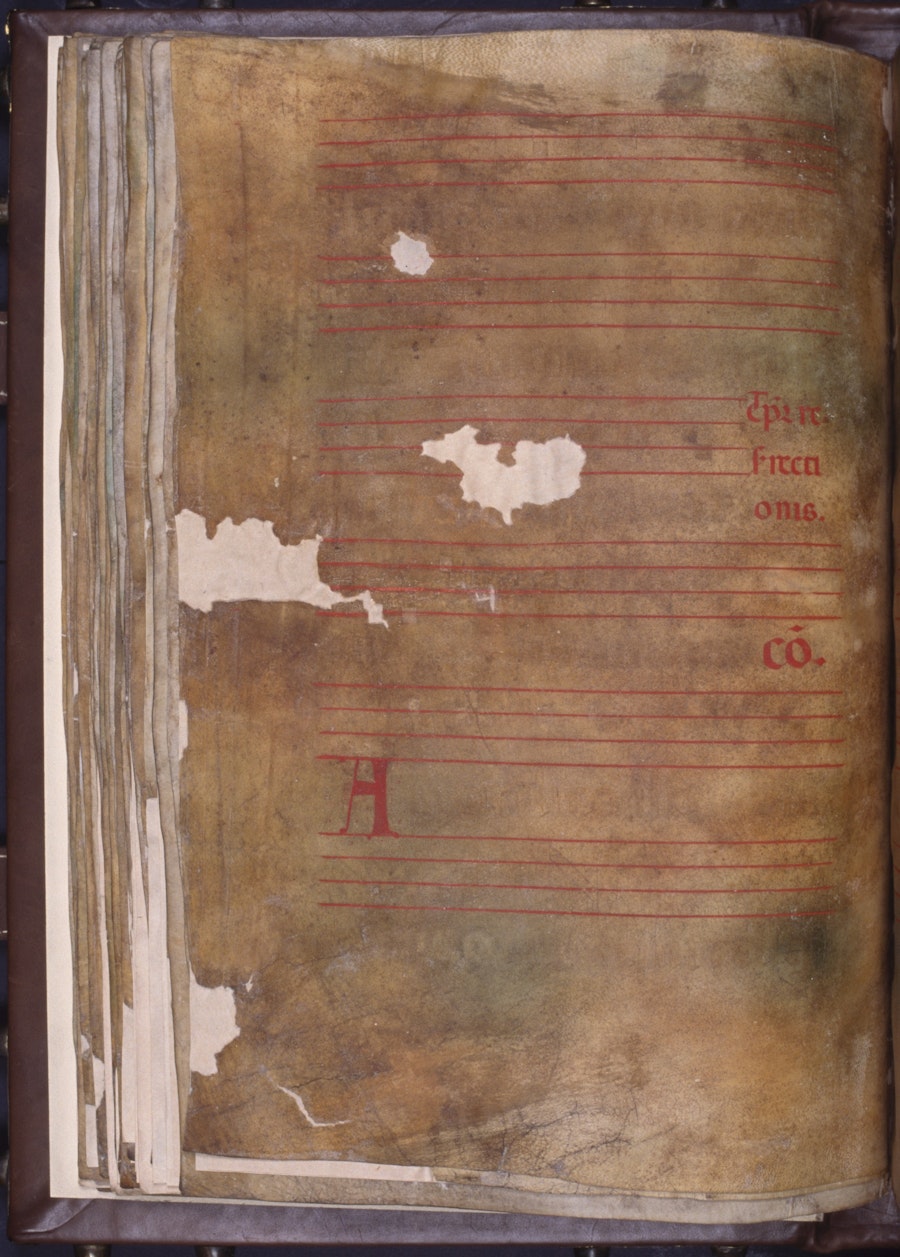 Tp̄r re-
srrecti
onis.
cō.
A